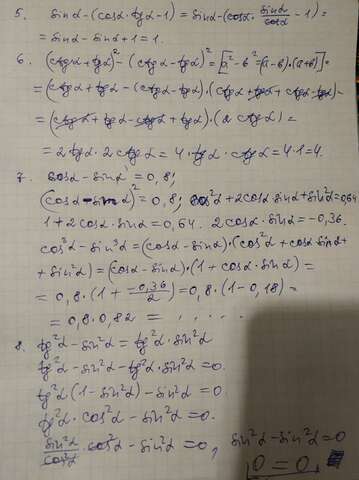 5. sinα-(cosα·tgα-1)=sinα-(cosα·sinα/cosα-1)=
=sinα-sinα+1=1.
6. (ctgα+tgα)²-(ctgα-tgα)²=[a²-b²=(a-b)·(a+b)]=
=(ctgα+tgα-(ctgα-tgα))·(ctgα+tgα+ctgα-tgα)=
=(ctgα+tgα-ctgα+tgα)·(2ctgα)=
=2tgα·2ctgα=4·tgα·ctgα=4·1=4.
7. cosα-sinα=0,8;
(cosα-sinα)²=0,8; cos²α+2cosα·sinα+sin²α=0,64
1+2cosα·sinα=0,64. 2cosα·sinα=-0,36.
cos³α-sin³α=(cosα-sinα)·(cos²α+cosα·sinα+
+sin²α)=(cosα-sinα)·(1+cosα·sinα)=
=0,8·(1+-0,36/2)=0,8·(1-0,18)=
=0,8·0,82=.....
8. tg²α-sin²α=tg²α·sin²α
tg²α-sin²α-tg²α·sin²α=0.
tg²α(1-sin²α)-sin²α=0
tg²α·cos²α-sin²α=0.
sin²α/cos²α·cos²α-sin²α=0, sin²α-sin²α=0
0=0.